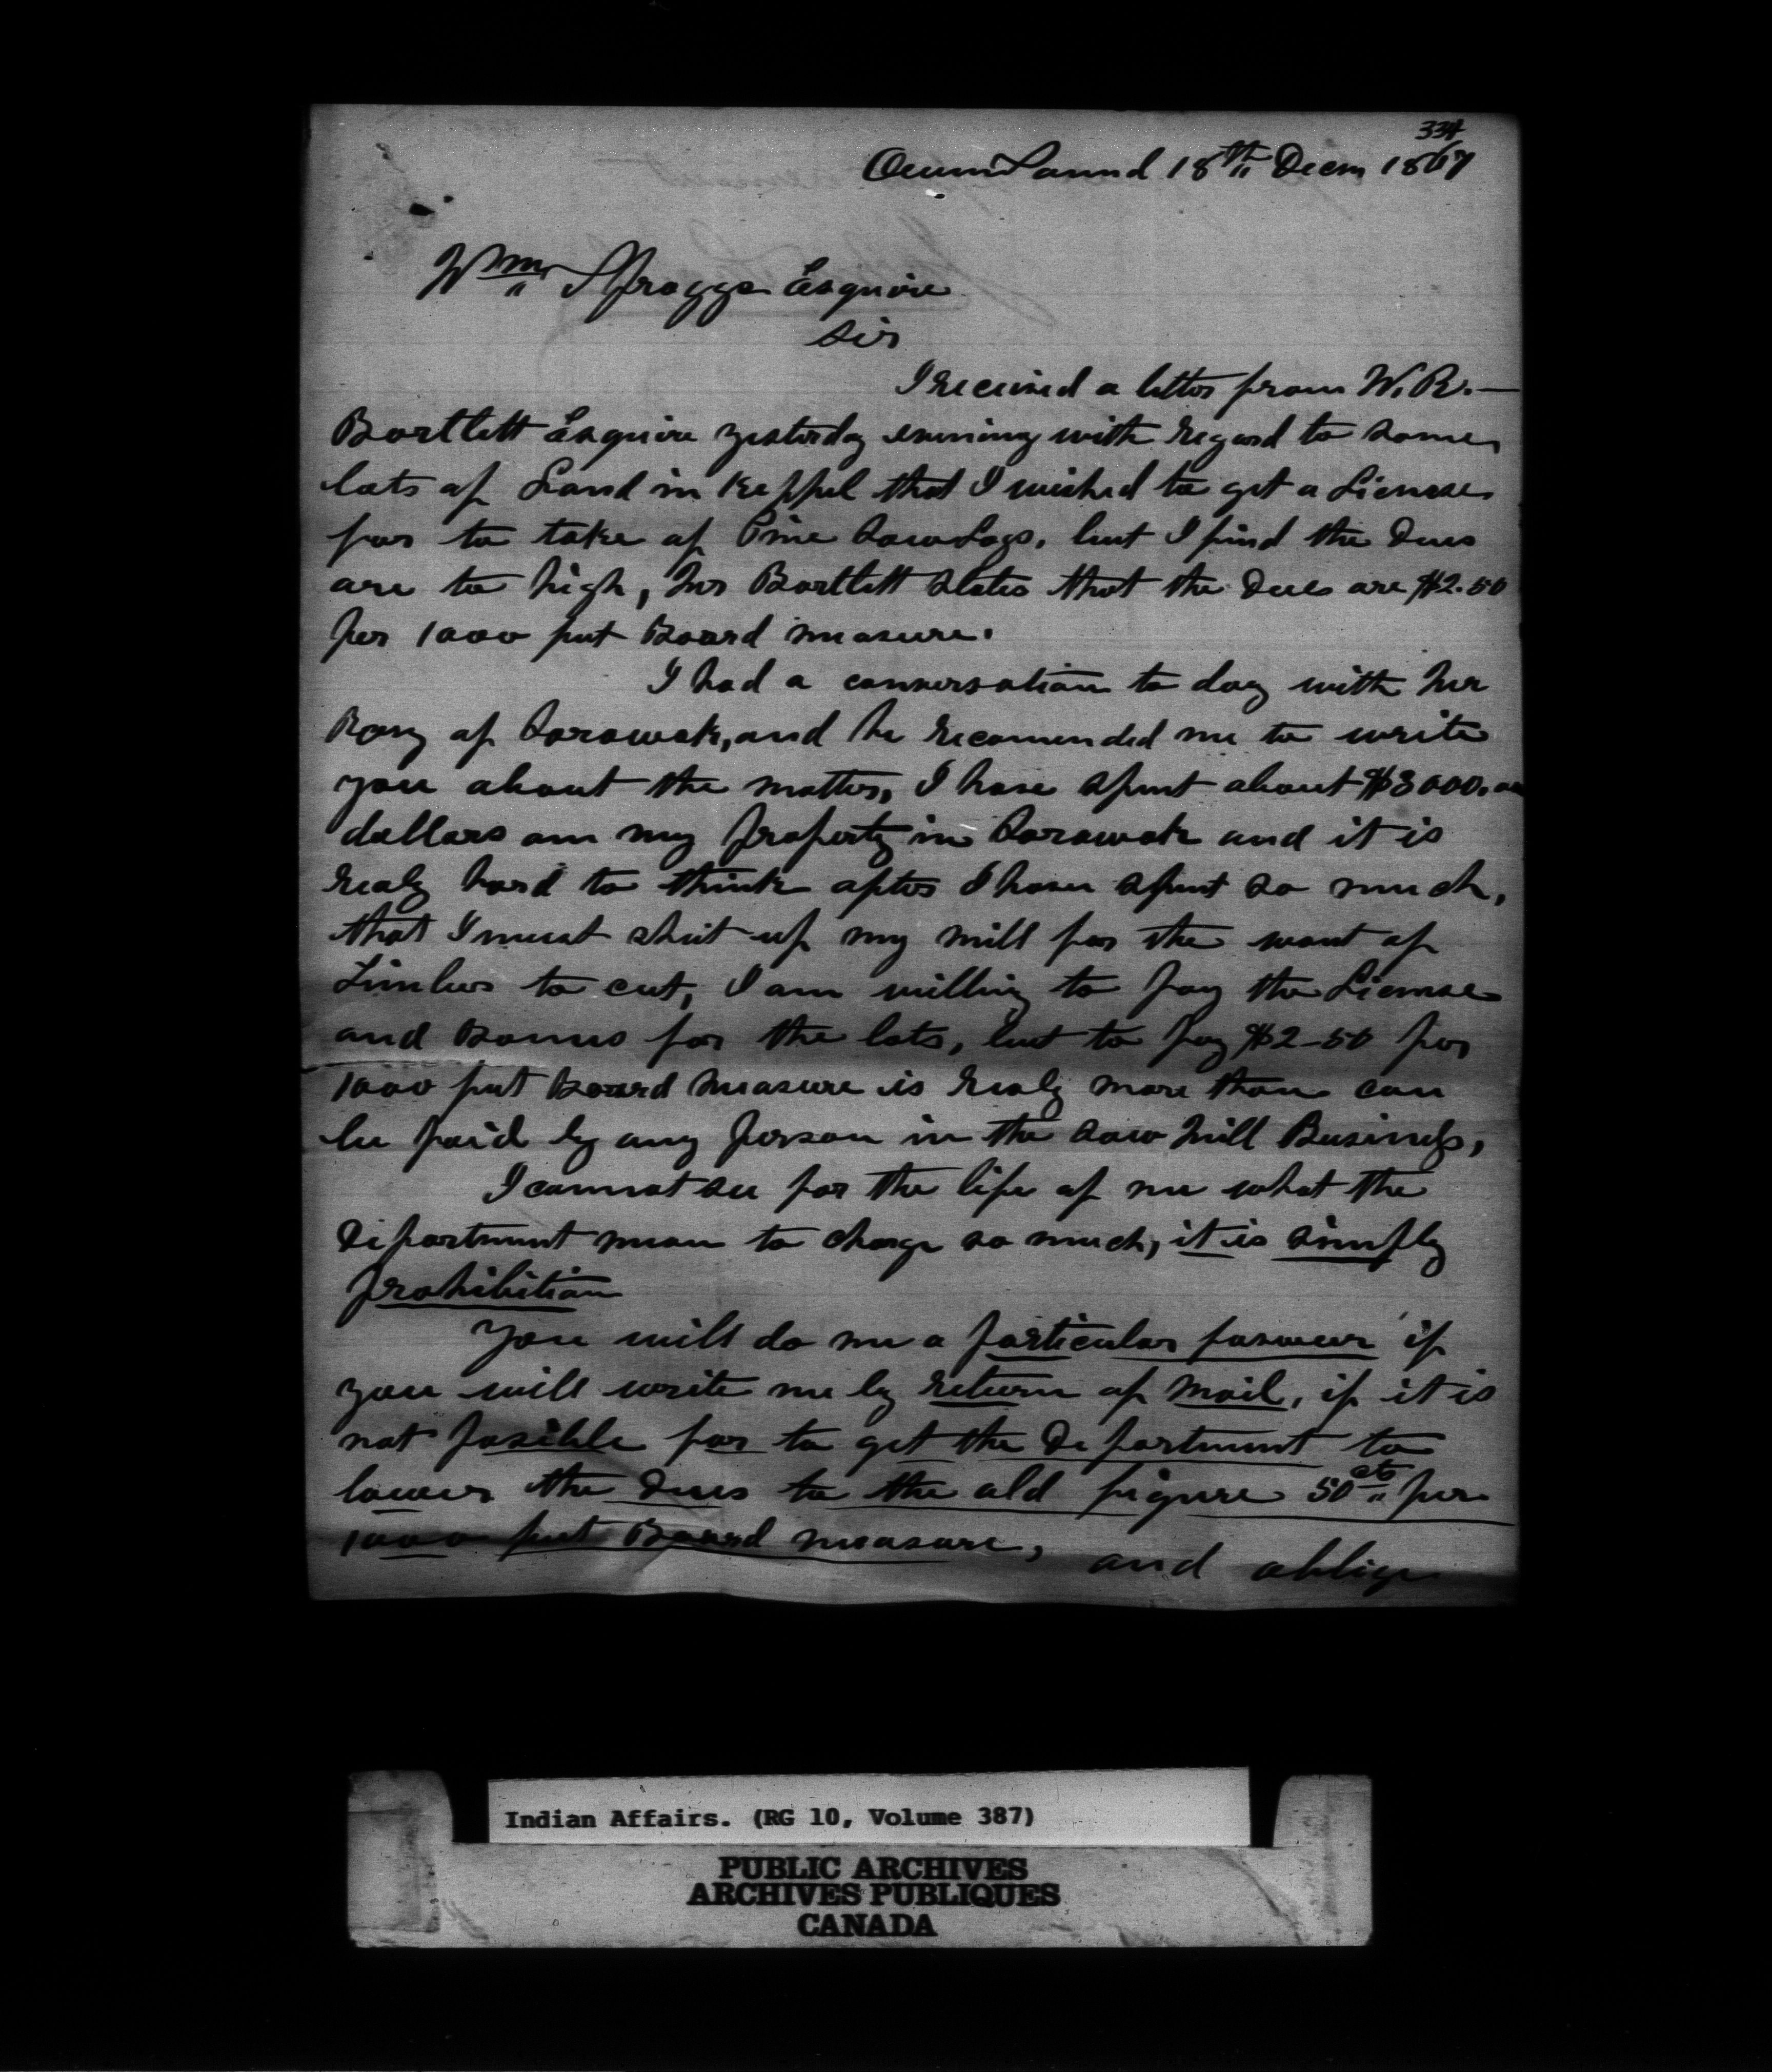 334
Owen Sound 18th Decm 1867
Wm Spragge Esquire
Sir
I received a letter from W. R. —
Bartlett Esquire yesterday evening with regard to some
lots of Land in Keppel that I wished to get a License
for to take of Pine Saw Logs, but I find the Dues
are to high, Mr Bartlett States that the Dues are $2.50
per 1000 feet Board measure.
I had a conversation to day with Mr
of Sarawak, and he recomended me to write
you about the matter, I have spent about $8000.00
dollars on my property in Sarawak and it is
realy hard to think after I have spent so much,
that I must shut up my mill for the want of
Timber to cut, I am willing to pay the License
and Bonus for the lots, but to pay $2-50 per
1000 feet Board measure is realy more than can
be paid by any person in the Saw Mill Business,
I cannot see for the life of me what the
Department mean to charge so much, it is simply
prohibition
You will do me a particular favour if
you will write me by return of Mail, if it is
not posible for to get the Department to
lower the Dues to the old figure 50 cts per
1000 feet Board measure, and oblige
Indian Affairs. (RG 10, Volume 387)
PUBLIC ARCHIVES
ARCHIVES PUBLIQUES
CANADA